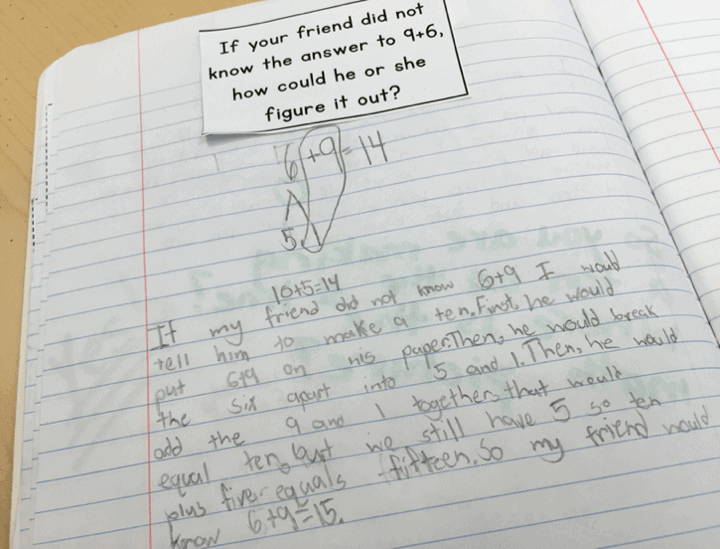 If your friend did not
know the answer to 9+6,
how could he or she
figure it out?
6+9=14
5 1
10+5=14
If my friend did not know 6+9 I would
tell him to make a ten. First, he would
put 6+9 on his paper. Then, he would break
the six apart into 5 and 1. Then, he would
add the 9 and 1 together that would
equal ten, but we still have 5 so ten
plus five equals fifteen. So my friend would
know 6+9=15.